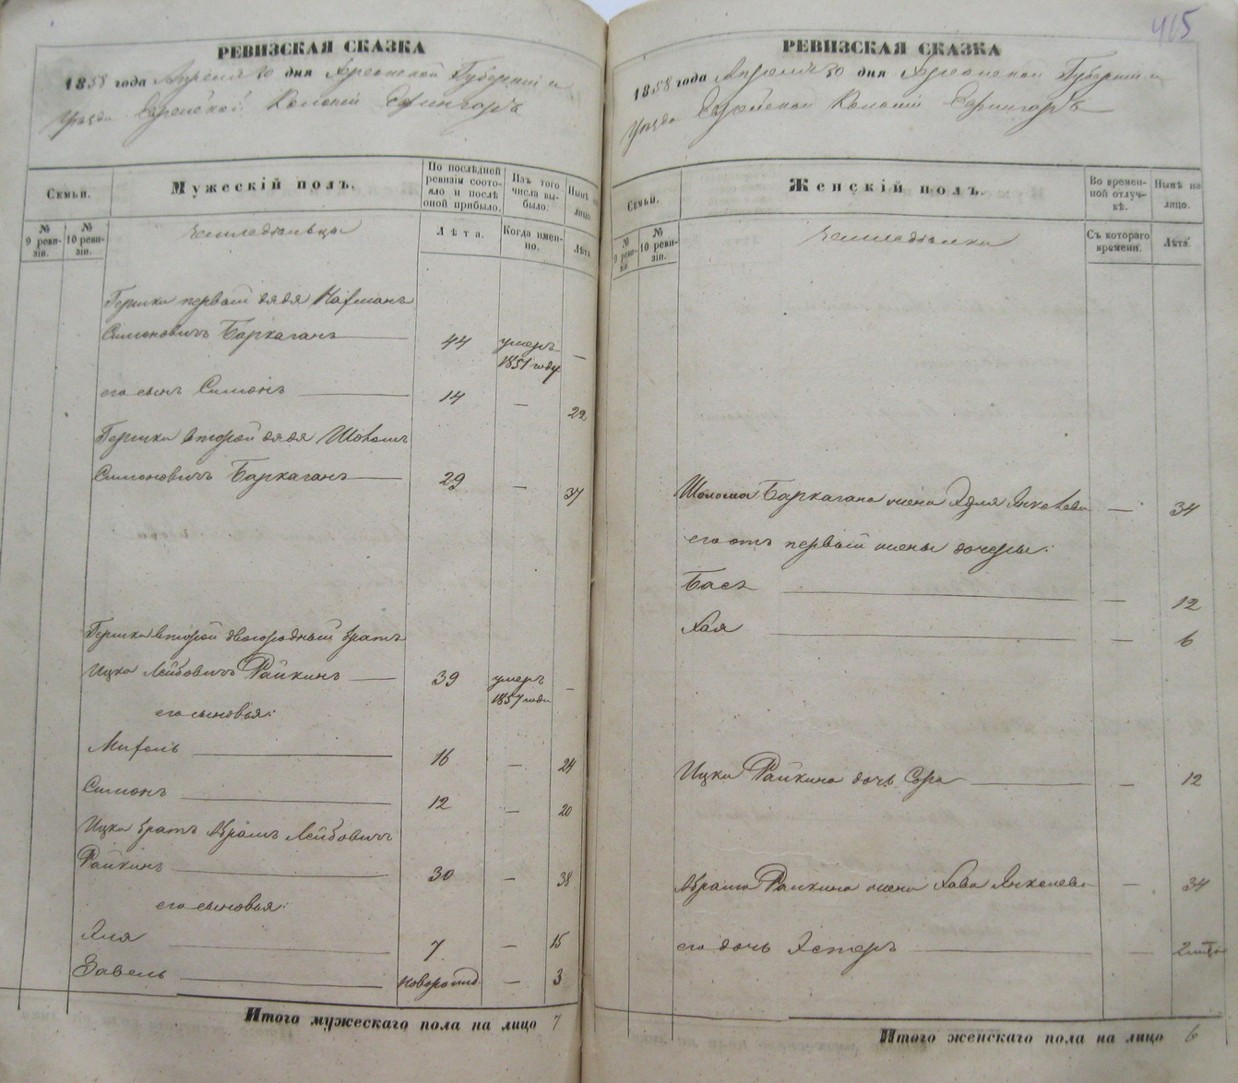 РЕВИЗСКАЯ СКАЗКА
1858 года Апреля 30 дня Херсонской Губернии и
Уезда Еврейской Колонии Ефингаръ
Семьи.
Мужескій полъ.
По послѣдней ревизіи состояло и послѣ оной прибыло.
Изъ того числа выбыло.
Нынѣ на лицо.
№ 9 ревизіи.
№ 10 ревизіи.
Лѣта.
Когда именно.
Лѣта
Земледѣльцы
Гершки первый дядя
Симоновичъ Баркаганъ 44 умеръ 1851 году —
его сынъ Симонъ 14 — 22
Гершки второй дядя Шоломъ
Симоновичъ Баркаганъ 29 — 37
Гершки второй двоюродный братъ
Ицко Лейбовичъ Райкинъ 39 умеръ 1857 году —
его сыновья:
16 — 24
Симонъ 12 — 20
Ицки братъ Абрамъ Лейбовичъ
Райкинъ 30 — 38
его сыновья:
7 — 15
Завель новорожд. — 3
Итого мужескаго пола на лицо 7
415
РЕВИЗСКАЯ СКАЗКА
1858 года Апреля 30 дня Херсонской Губернии и
Уезда Еврейской Колонии Ефингаръ
Семьи.
Женскій полъ.
Во временной отлучкѣ.
Нынѣ на лицо.
№ 9 ревизіи.
№ 10 ревизіи.
Съ котораго времени.
Лѣта.
Земледѣлки
Шолома Баркагана жена Янкелева — 34
его отъ первой жены дочери:
Бася — 12
Хая — 6
Ицки Райкина дочь Сора — 12
Абрама Райкина жена Хава Янкелева — 34
его дочь Эстеръ — 2
Итого женскаго пола на лицо 6